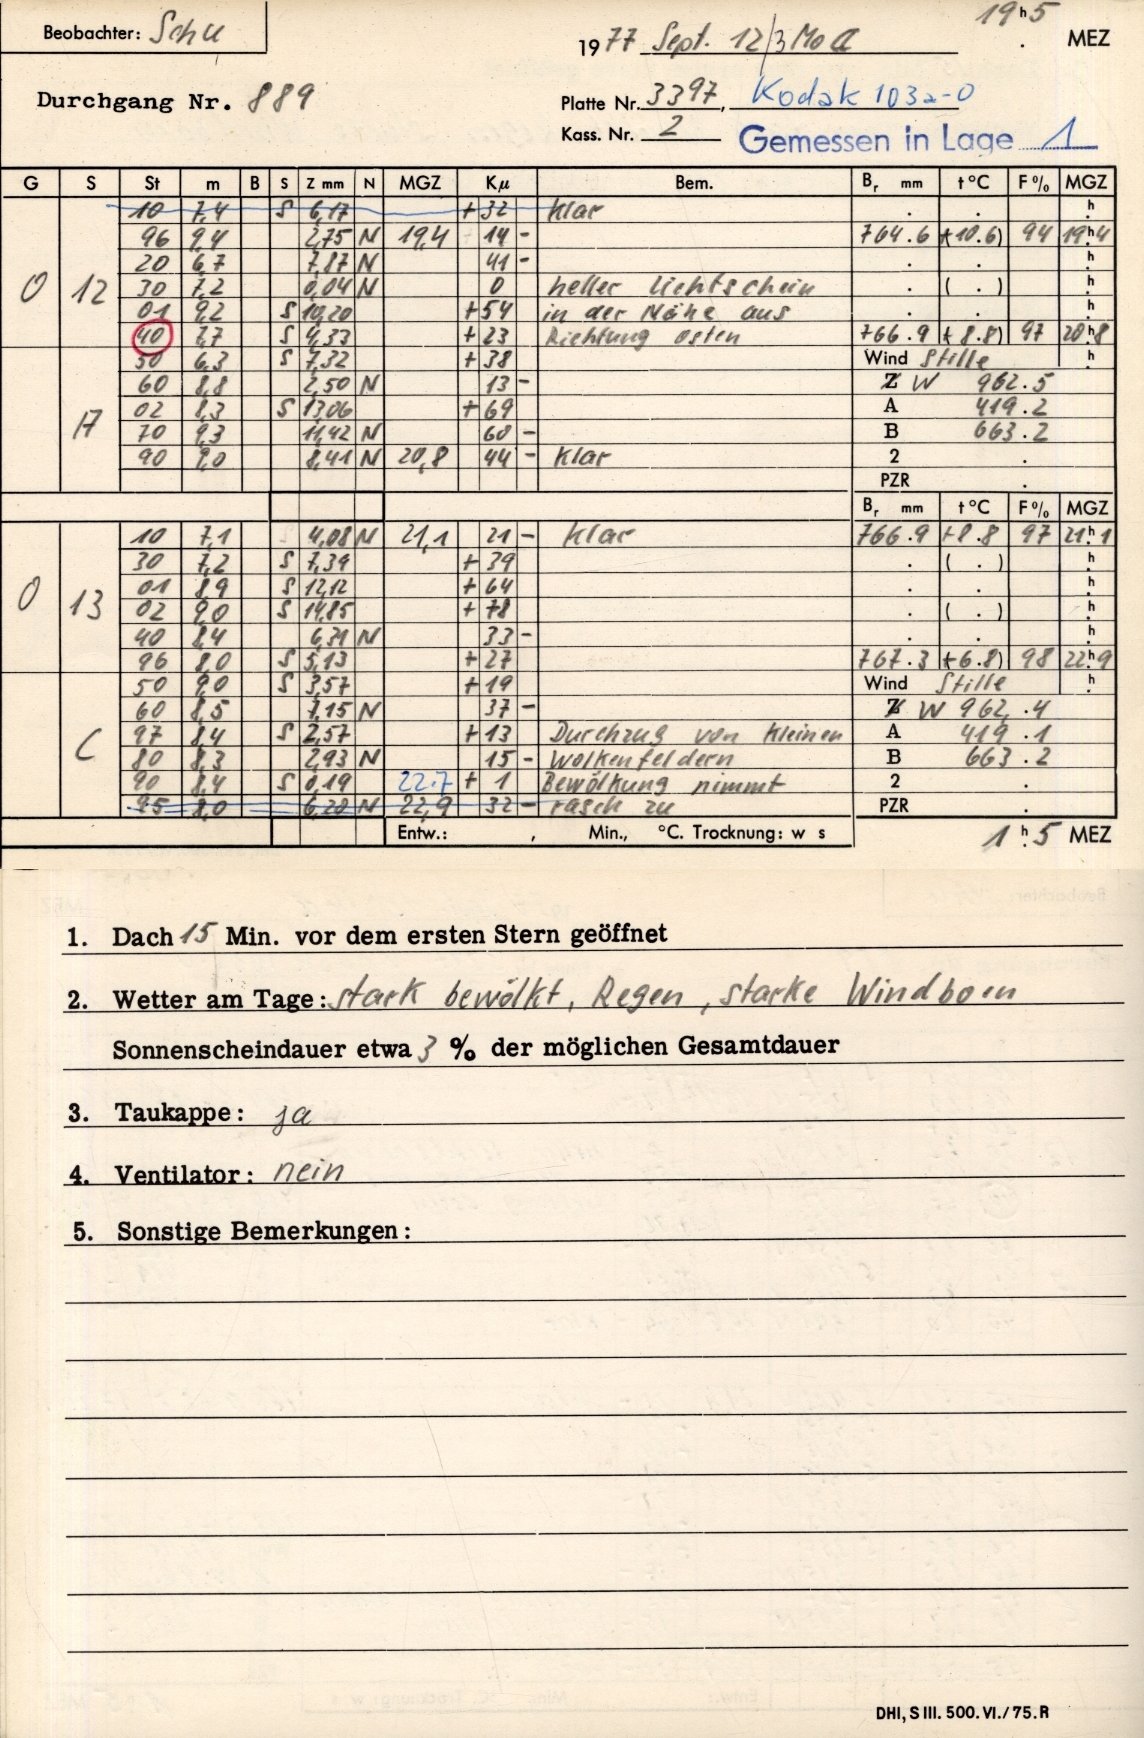 Beobachter: Schu
1977 Sept. 12/3 Mo
19 h 5 MEZ
Durchgang Nr. 889
Platte Nr. 3397, Kodak 103a-O
Kass. Nr. 2
Gemessen in Lage 1
G S St m B S Z mm N MGZ Kμ Bem. Br mm t °C F % MGZ
10 7,4 S 6,17 + 32 klar . . h
96 9,4 2,75 N 19,4 14 - 764.6 (+10.6) 94 19 h 4
20 6,7 7,87 N 41 - . . h
O 12 30 7,2 0,04 N 0 heller Lichtschein . ( . ) h
01 9,2 S 10,20 + 54 in der Nähe aus . . h
40 7,7 S 4,33 + 23 Richtung Osten 766.9 (+8.8) 97 20 h 8
50 6,3 S 7,32 + 38 Wind Stille h
60 8,8 2,50 N 13 - Z W 962.5
17 02 8,3 S 13,06 + 69 A 419.2
70 9,3 11,42 N 60 - B 663.2
90 9,0 8,41 N 20,8 44 - klar 2 .
PZR .
Br mm t °C F % MGZ
10 7,1 4,08 N 21,1 21 - klar 766.9 +8.8 97 21 h 1
30 7,2 S 7,39 + 39 . ( . ) h
01 8,9 S 12,12 + 64 . . h
O 13 02 9,0 S 14,85 + 78 . ( . ) h
40 8,4 6,31 N 33 - . . h
96 8,0 S 5,13 + 27 767.3 (+6.8) 98 22 h 9
50 9,0 S 3,57 + 19 Wind Stille h
60 8,5 7,15 N 37 - Z W 962.4
C 97 8,4 S 2,57 + 13 Durchzug von kleinen A 419.1
80 8,3 2,93 N 15 - Wolkenfeldern B 663.2
90 8,4 S 0,19 22.7 + 1 Bewölkung nimmt 2 .
95 8,0 6,20 N 22,9 32 - rasch zu PZR .
Entw.: , Min., °C. Trocknung: w s 1 h 5 MEZ
1. Dach 15 Min. vor dem ersten Stern geöffnet
2. Wetter am Tage: stark bewölkt, Regen, starke Windboen
Sonnenscheindauer etwa 3 % der möglichen Gesamtdauer
3. Taukappe: ja
4. Ventilator: nein
5. Sonstige Bemerkungen:
DHI, S III. 500. VI./75. R